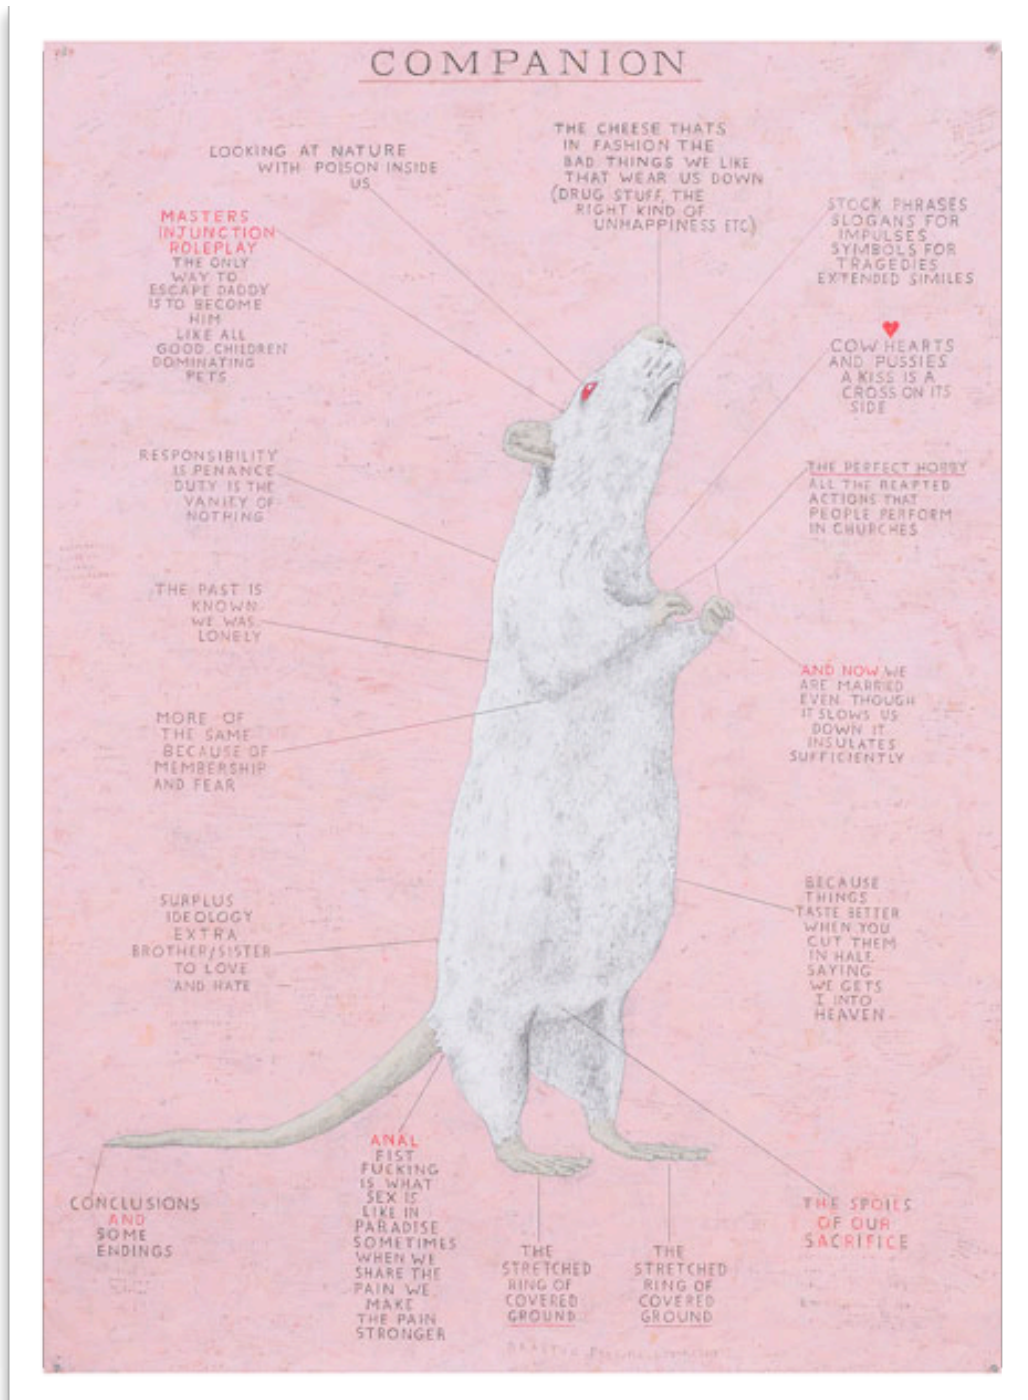 COMPANION
LOOKING AT NATURE
WITH POISON INSIDE
US
THE CHEESE THATS
IN FASHION THE
BAD THINGS WE LIKE
THAT WEAR US DOWN
(DRUG STUFF, THE
RIGHT KIND OF
UNHAPPINESS ETC)
STOCK PHRASES
SLOGANS FOR
IMPULSES
SYMBOLS FOR
TRAGEDIES
EXTENDED SIMILES
MASTERS
INJUNCTION
ROLEPLAY
THE ONLY
WAY TO
ESCAPE DADDY
IS TO BECOME
HIM
LIKE ALL
GOOD CHILDREN
DOMINATING
PETS
COW HEARTS
AND PUSSIES
A KISS IS A
CROSS ON ITS
SIDE
RESPONSIBILITY
IS PENANCE
DUTY IS THE
VANITY OF
NOTHING
THE PERFECT HOBBY
ALL THE REAPTED
ACTIONS THAT
PEOPLE PERFORM
IN CHURCHES
THE PAST IS
KNOWN
WE WAS
LONELY
AND NOW WE
ARE MARRIED
EVEN THOUGH
IT SLOWS US
DOWN IT
INSULATES
SUFFICIENTLY
MORE OF
THE SAME
BECAUSE OF
MEMBERSHIP
AND FEAR
SURPLUS
IDEOLOGY
EXTRA
BROTHER/SISTER
TO LOVE
AND HATE
BECAUSE
THINGS
TASTE BETTER
WHEN YOU
CUT THEM
IN HALF,
SAYING
WE GETS
I INTO
HEAVEN
CONCLUSIONS
AND
SOME
ENDINGS
ANAL
FIST
FUCKING
IS WHAT
SEX IS
LIKE IN
PARADISE
SOMETIMES
WHEN WE
SHARE THE
PAIN WE
MAKE
THE PAIN
STRONGER
THE
STRETCHED
RING OF
COVERED
GROUND
THE
STRETCHED
RING OF
COVERED
GROUND
THE SPOILS
OF OUR
SACRIFICE